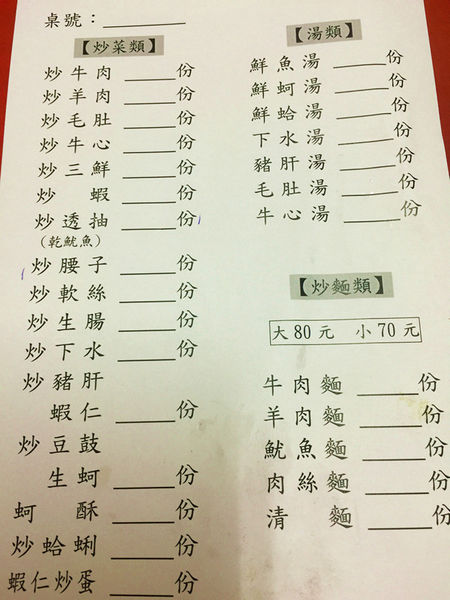 桌號：
【炒菜類】
炒牛肉 份
炒羊肉 份
炒毛肚 份
炒牛心 份
炒三鮮 份
炒蝦 份
炒透抽 份
(乾魷魚)
炒腰子 份
炒軟絲 份
炒生腸 份
炒下水 份
炒豬肝
蝦仁 份
炒豆鼓
生蚵 份
蚵酥 份
炒蛤蜊 份
蝦仁炒蛋 份
【湯類】
鮮魚湯 份
鮮蚵湯 份
鮮蛤湯 份
下水湯 份
豬肝湯 份
毛肚湯 份
牛心湯 份
【炒麵類】
大80元 小70元
牛肉麵 份
羊肉麵 份
魷魚麵 份
肉絲麵 份
清麵 份